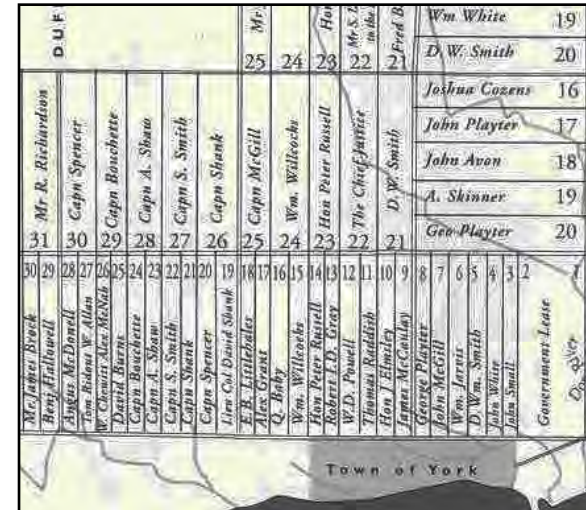 DUF
Mr
Hon
Mr S. L
to the
Fred B
25
24
23
22
21
Wm White 19
D. W. Smith 20
Joshua Cozens 16
John Playter 17
John Avon 18
A. Skinner 19
Geo Playter 20
Mr R. Richardson 31
Capn Spencer 30
Capn Bouchette 29
Capn A. Shaw 28
Capn S. Smith 27
Capn Shank 26
Capn McGill 25
Wm. Willcocks 24
Hon Peter Russell 23
The Chief Justice 22
D.W. Smith 21
30 Mr. James Brock
29 Benj Hallowell
28 Angus McDonell
27 Tom Ridout W. Allan
26 W. Chewitt Alex McNab
25 David Burns
24 Capn Bouchette
23 Capn A. Shaw
22 Capn S. Smith
21 Capn Shank
20 Capn Spencer
19 Lieu Col David Shank
18 E.B. Littlehales
17 Alex Grant
16 Q. Baby
15 Wm. Willcocks
14 Hon Peter Russell
13 Robert I.D. Gray
12 W.D. Powell
11 Thomas Raddish
10 Hon J Elmsley
9 James McCaulay
8 George Playter
7 John McGill
6 Wm. Jarvis
5 D. Wm. Smith
4 John White
3 John Small
2
Government Lease
Don River
Town of York